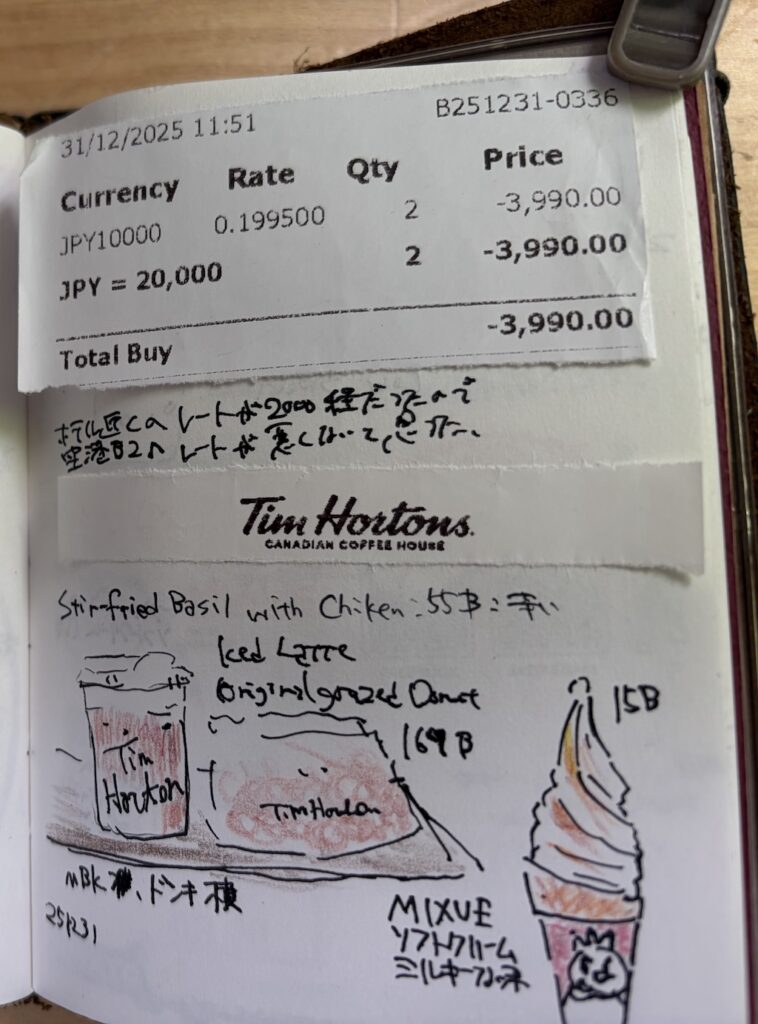 31/12/2025 11:51 B251231-0336
Currency Rate Qty Price
JPY10000 0.199500 2 -3,990.00
JPY = 20,000 2 -3,990.00
Total Buy -3,990.00
ホテル近くのレートが2000 だったので
空港B2のレートが悪くないと思った。
Tim Hortons.
CANADIAN COFFEE HOUSE
Stir-fried Basil with Chiken:55B:辛い
Iced Latte
Original grazed Donut
169B
Tim
Horton
Tim Horton
MBK 、ドンキ横
251231
15B
MIXUE
ソフトクリーム
ミルキー